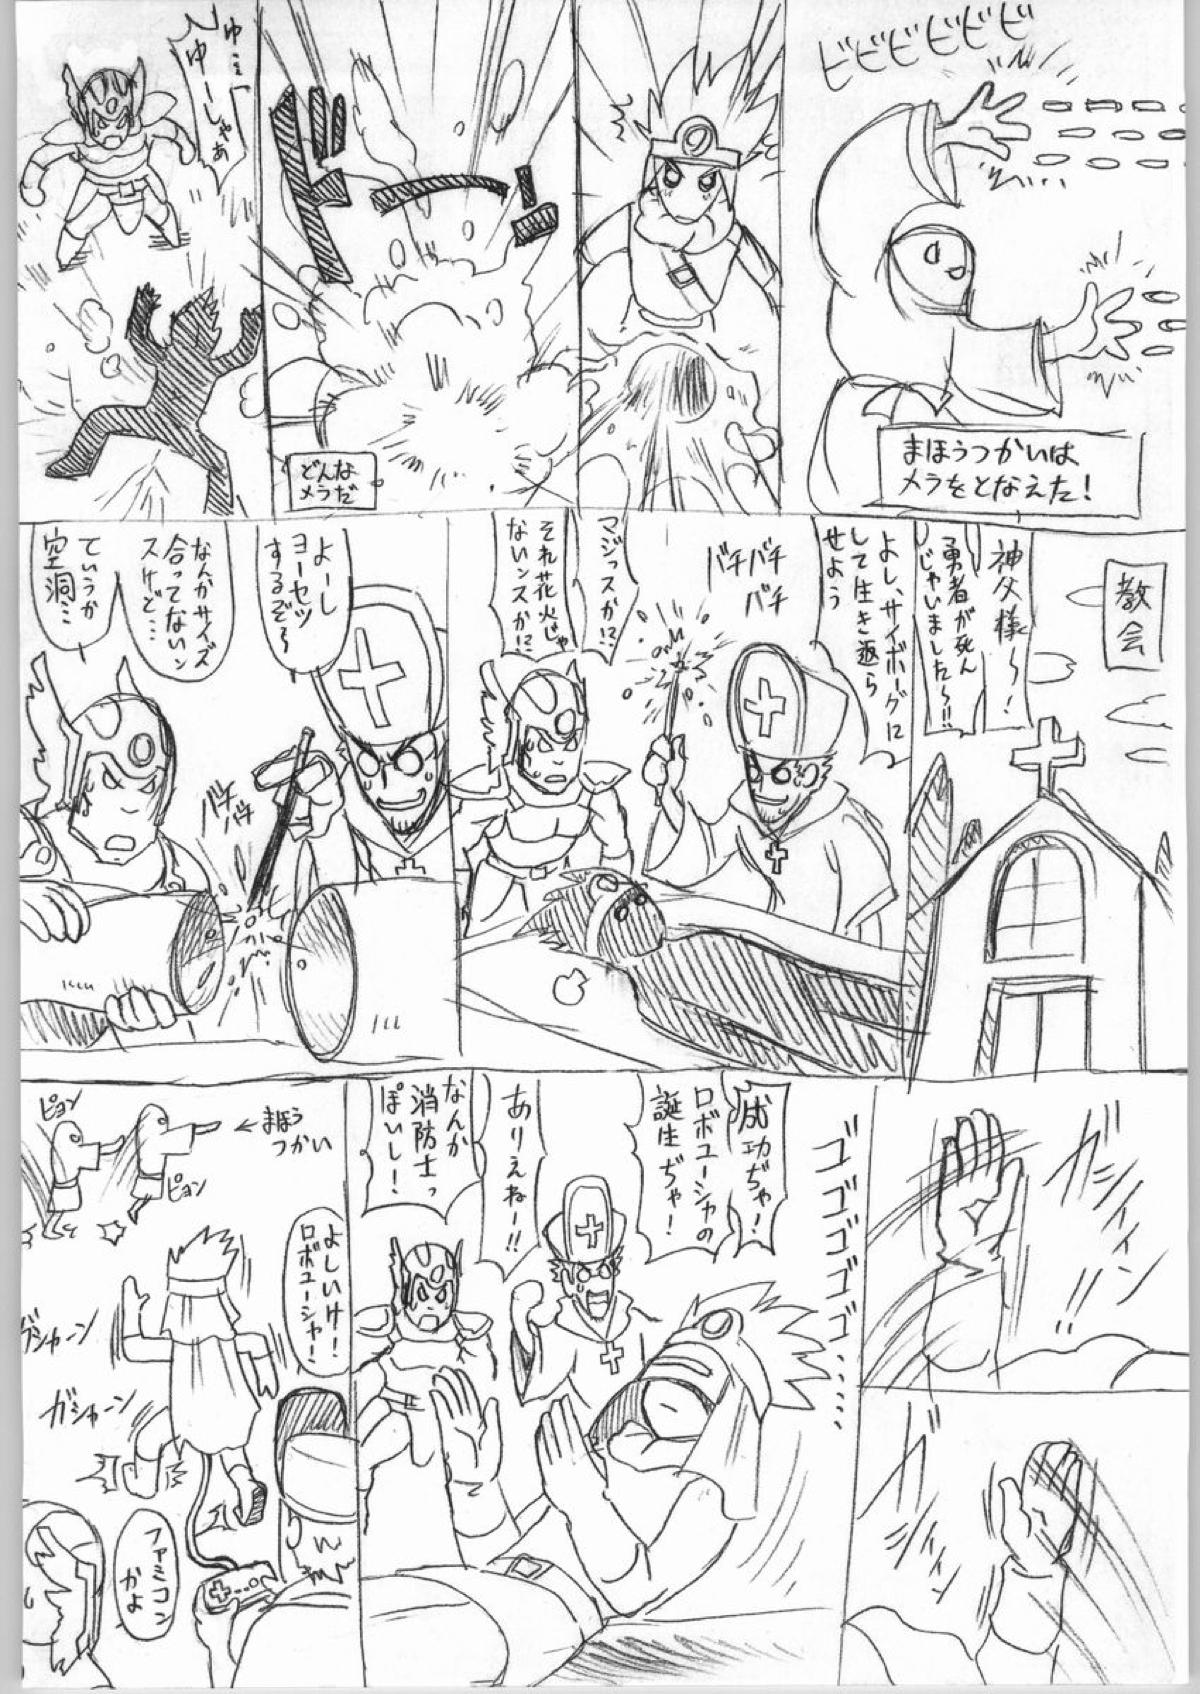 ビビビビビビ
まほうつかいは
メラをとなえた！
どんな
メラだ
ゆ…
ゆーしゃあ
教会
神父様～！
勇者が死ん
じゃいました～!!
よし、サイボーグに
して生き返ら
せよう
バチバチ
バチ
マジっスか!?
それ花火じゃ
ないンスか!?
よーし
ヨーセツ
するぞ～
バチ
バチ
なんかサイズ
合ってないン
スけど…
ていうか
空洞…
ゴゴゴゴゴゴ……
成功ぢゃ！
ロボユーシャの
誕生ぢゃ！
ありえねー!!
なんか
消防士っ
ぽいし！
ピョン
ピョン
←まほう
つかい
よしいけ！
ロボユーシャ！
ガシャーン
ガシャーン
ファミコン
かよ